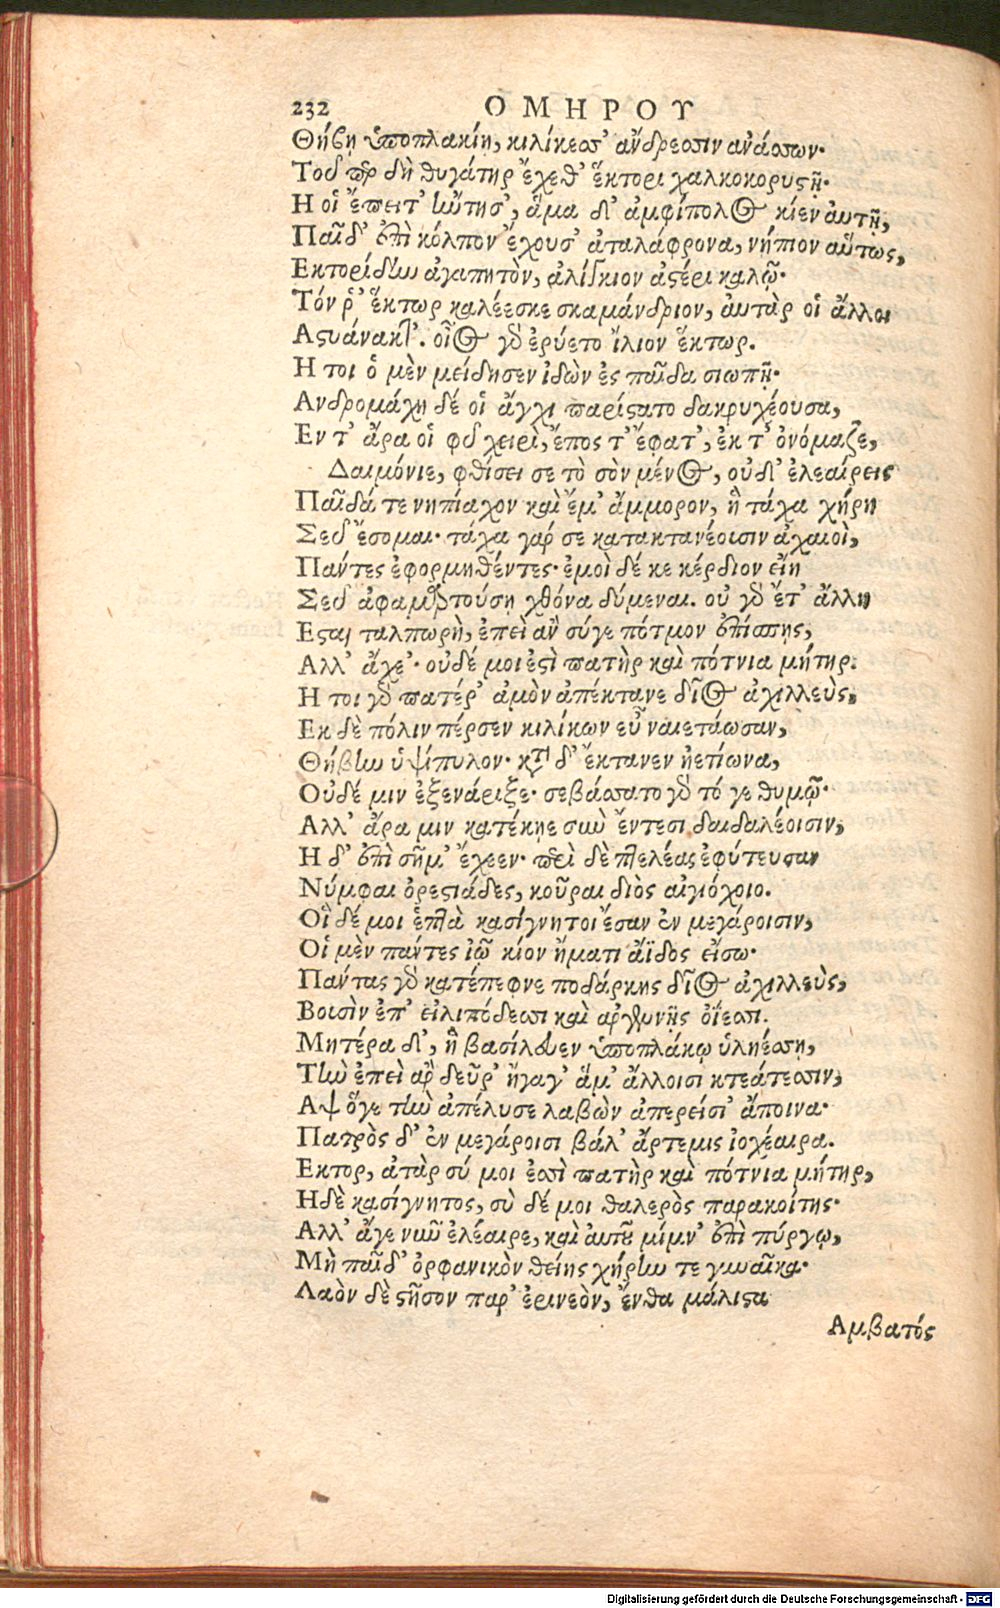 232 ΟΜΗΡΟΥ
Θήβῃ ὑποπλακίῃ, κιλίκεσσ' ἄνδρεσσιν ανάσσων·
Τοῦ περ δὴ θυγάτηρ ἔχεθ' ἕκτορι χαλκοκορυςῇ·
Η οἱ ἔπειτ' ἤντησ', ἅμα δ' ἀμφίπολος κίεν ἀυτῇ,
Παῖδ' ἐπὶ κόλπον ἔχουσ' ἀταλάφρονα, νήπιον αὕτως,
Εκτορίδην ἀγαπητὸν, ἀλίγκιον ἀςέρι καλῷ·
Τόν ῥ' ἕκτωρ καλέεσκε σκαμάνδριον, ἀυτὰρ οἱ ἄλλοι
Αςυάνακτ'. οἶος γὰρ ἐρύετο ἴλιον ἕκτωρ.
Η τοι ὁ μὲν μείδησεν ἰδὼν ἐς παῖδα σιωπῇ·
Ανδρομάχη δέ οἱ ἄγχι παρίςατο δακρυχέουσα,
Εν τ' ἄρα οἱ φῦ χειρὶ, ἔπος τ' ἔφατ', ἐκ τ' ὀνόμαζε,
Δαιμόνιε, φθίσει σε τὸ σὸν μένος, οὐδ' ἐλεαίρεις
Παῖδά τε νηπίαχον καὶ ἔμ' ἄμμορον, ἣ τάχα χήρη
Σεῦ ἔσομαι· τάχα γάρ σε κατακτανέουσιν ἀχαιοὶ,
Πάντες ἐφορμηθέντες· ἐμοὶ δέ κε κέρδιον εἴη
Σεῦ ἀφαμαρτούσῃ χθόνα δύμεναι. οὐ γὰρ ἔτ' ἄλλη
Εςαι ταλπωρὴ, ἐπεὶ ἂν σύγε πότμον ἐπίσπῃς,
Αλλ' ἄχε'· οὐδέ μοι ἐςὶ πατὴρ καὶ πότνια μήτηρ.
Η τοι γὰρ πατέρ' ἁμὸν ἀπέκτανε δῖος ἀχιλλεὺς,
Εκ δὲ πόλιν πέρσεν κιλίκων εὖ ναιετάωσαν,
Θήβην ὑψίπυλον· κατὰ δ' ἔκτανεν ἠετίωνα,
Οὐδέ μιν ἐξενάριξε· σεβάσσατο γὰρ τό γε θυμῷ·
Αλλ' ἄρα μιν κατέκηε σὺν ἔντεσι δαιδαλέοισιν,
Η δ' ἐπὶ σῆμ' ἔχεεν· περὶ δὲ πτελέας ἐφύτευσαν
Νύμφαι ὀρεςιάδες, κοῦραι διὸς αἰγιόχοιο.
Οἳ δέ μοι ἑπτὰ κασίγνητοι ἔσαν ἐν μεγάροισιν,
Οἱ μὲν πάντες ἰῷ κίον ἤματι ἄϊδος εἴσω·
Πάντας γὰρ κατέπεφνε ποδάρκης δῖος ἀχιλλεὺς,
Βουσὶν ἐπ' εἰλιπόδεσσι καὶ ἀργεννῇς ὀΐεσσι.
Μητέρα δ', ἣ βασίλευεν ὑποπλάκῳ ὑληέσσῃ,
Τὴν ἐπεὶ ἂρ δεῦρ' ἤγαγ' ἅμ' ἄλλοισι κτεάτεσσιν,
Αψ ὅγε τὴν ἀπέλυσε λαβὼν ἀπερείσι' ἄποινα·
Πατρὸς δ' ἐν μεγάροισι βάλ' ἄρτεμις ἰοχέαιρα.
Εκτορ, ἀτὰρ σύ μοι ἐσσὶ πατὴρ καὶ πότνια μήτηρ,
Ηδὲ κασίγνητος, σὺ δέ μοι θαλερὸς παρακοίτης·
Αλλ' ἄγε νῦν ἐλέαιρε, καὶ ἀυτοῦ μίμν' ἐπὶ πύργῳ,
Μὴ παῖδ' ὀρφανικὸν θείης χήρην τε γυναῖκα·
Λαὸν δὲ ςῆσον παρ' ἐρινεὸν, ἔνθα μάλιςα
Αμβατός
Digitalisierung gefördert durch die Deutsche Forschungsgemeinschaft - DFG